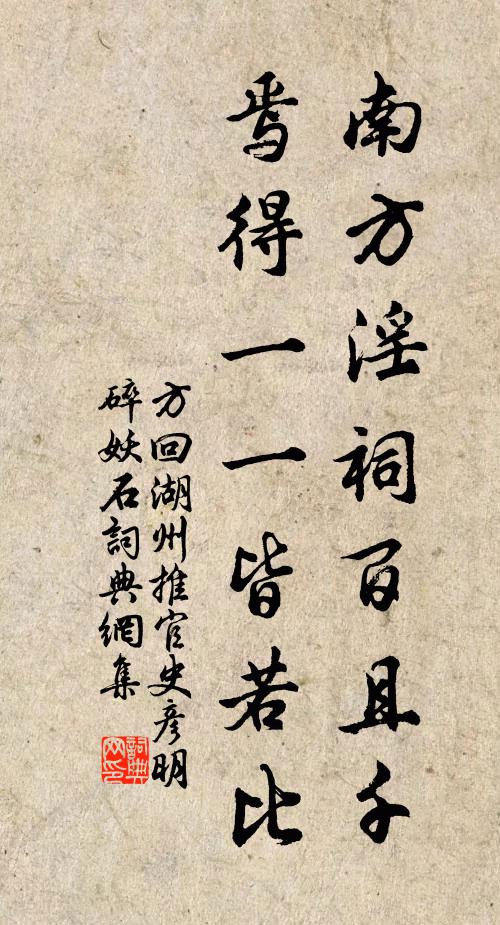 南方淫祠百且千
焉得一一皆若比
方回湖州推官史彥明
碎妖石詞典網集
詞典網印